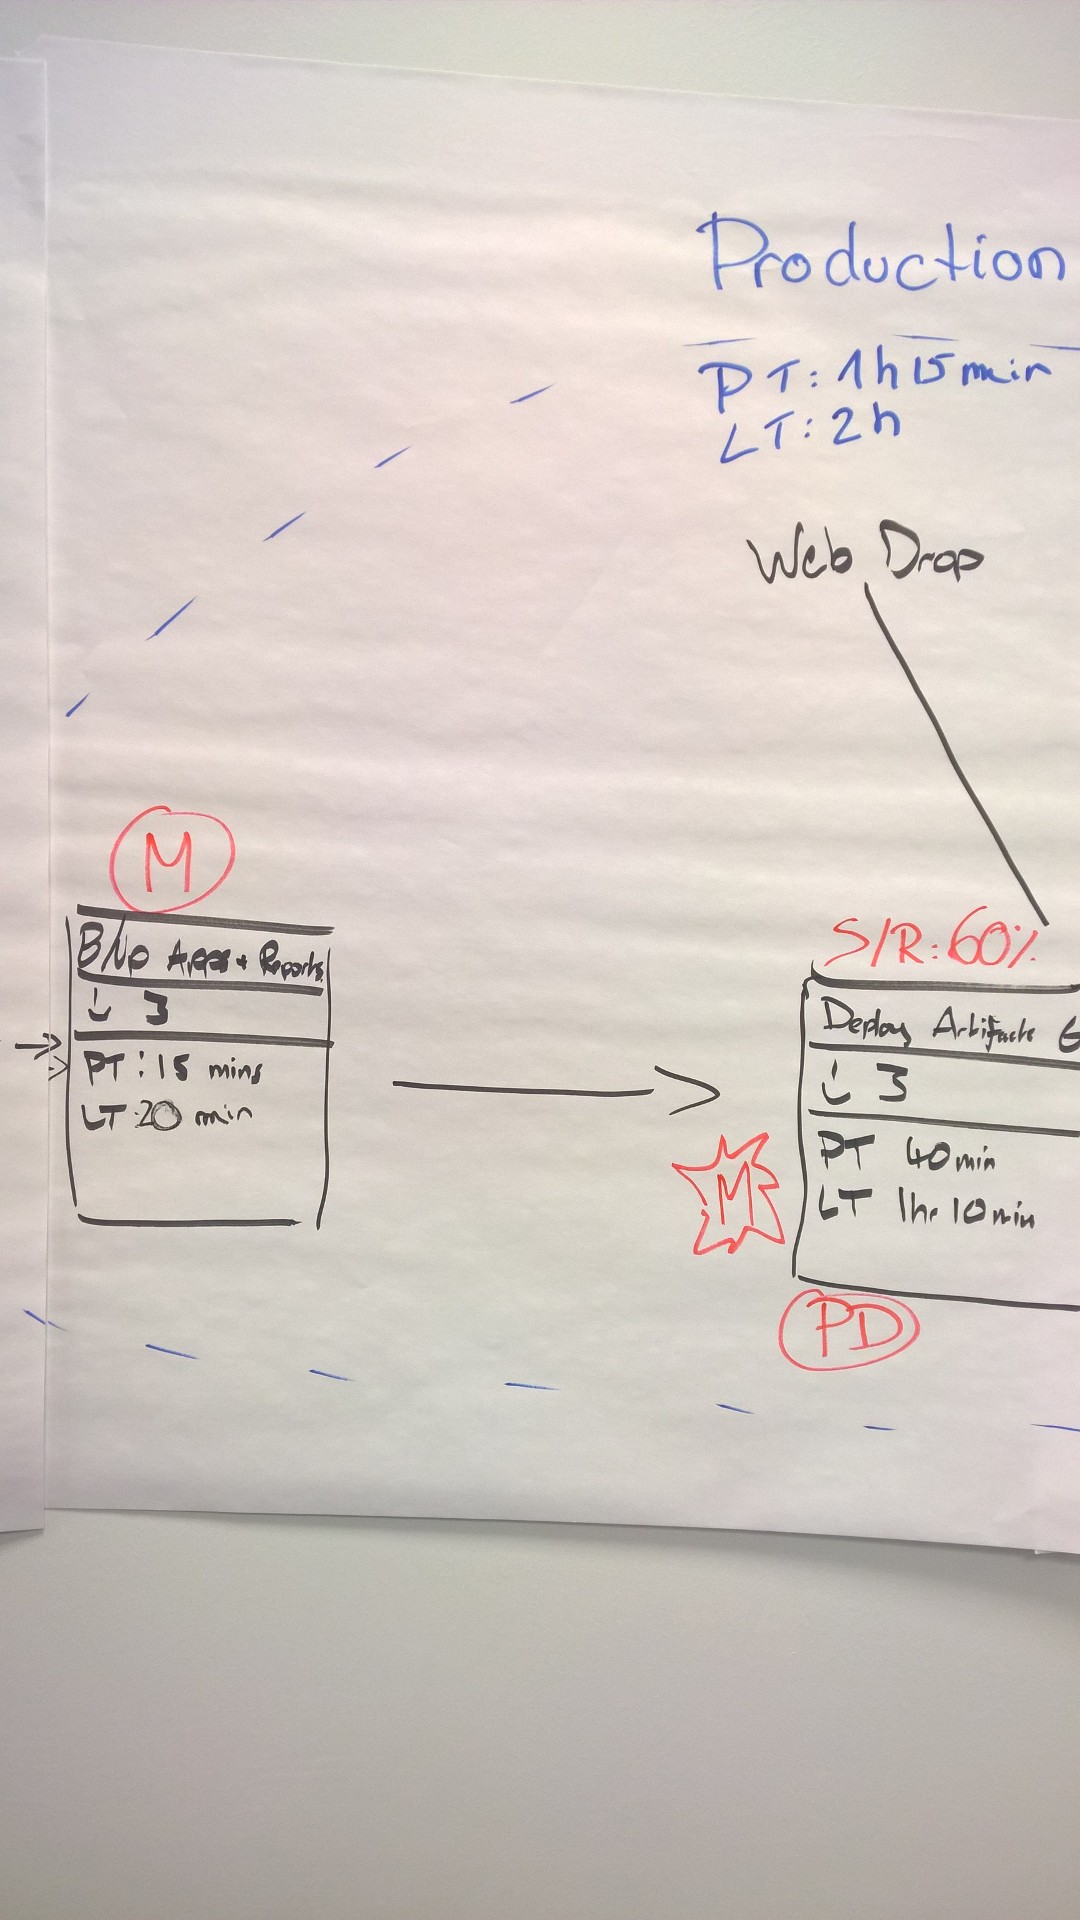 Production
PT: 1h 15min
LT: 2h
Web Drop
M
B/Up Apps + Reports
3
PT: 15 mins
LT: 20 min
S/R: 60%
Deploy Artifacts
3
PT 40min
LT 1hr 10min
M
PD